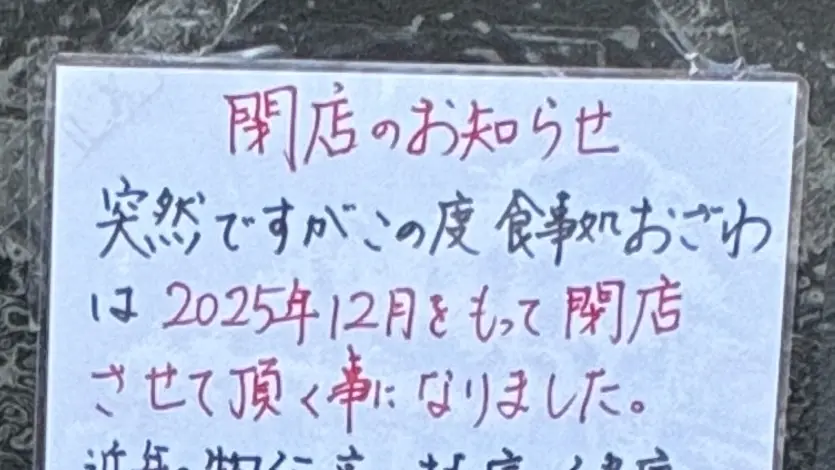 閉店のお知らせ
突然ですがこの度 食事処おざわ
は 2025年12月をもって 閉店
させて頂く事になりました。